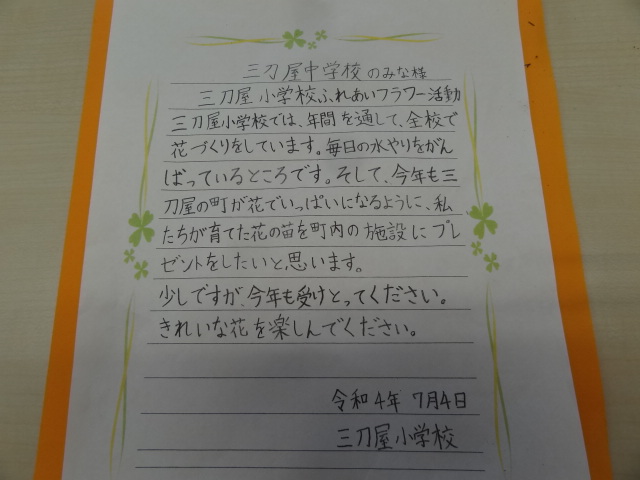 三刀屋中学校のみな様
三刀屋小学校ふれあいフラワー活動
三刀屋小学校では、年間を通して、全校で
花づくりをしています。毎日の水やりをがん
ばっているところです。そして、今年も三
刀屋の町が花でいっぱいになるように、私
たちが育てた花の苗を町内の施設にプレ
ゼントをしたいと思います。
少しですが、今年も受けとってください。
きれいな花を楽しんでください。
令和4年 7月4日
三刀屋小学校